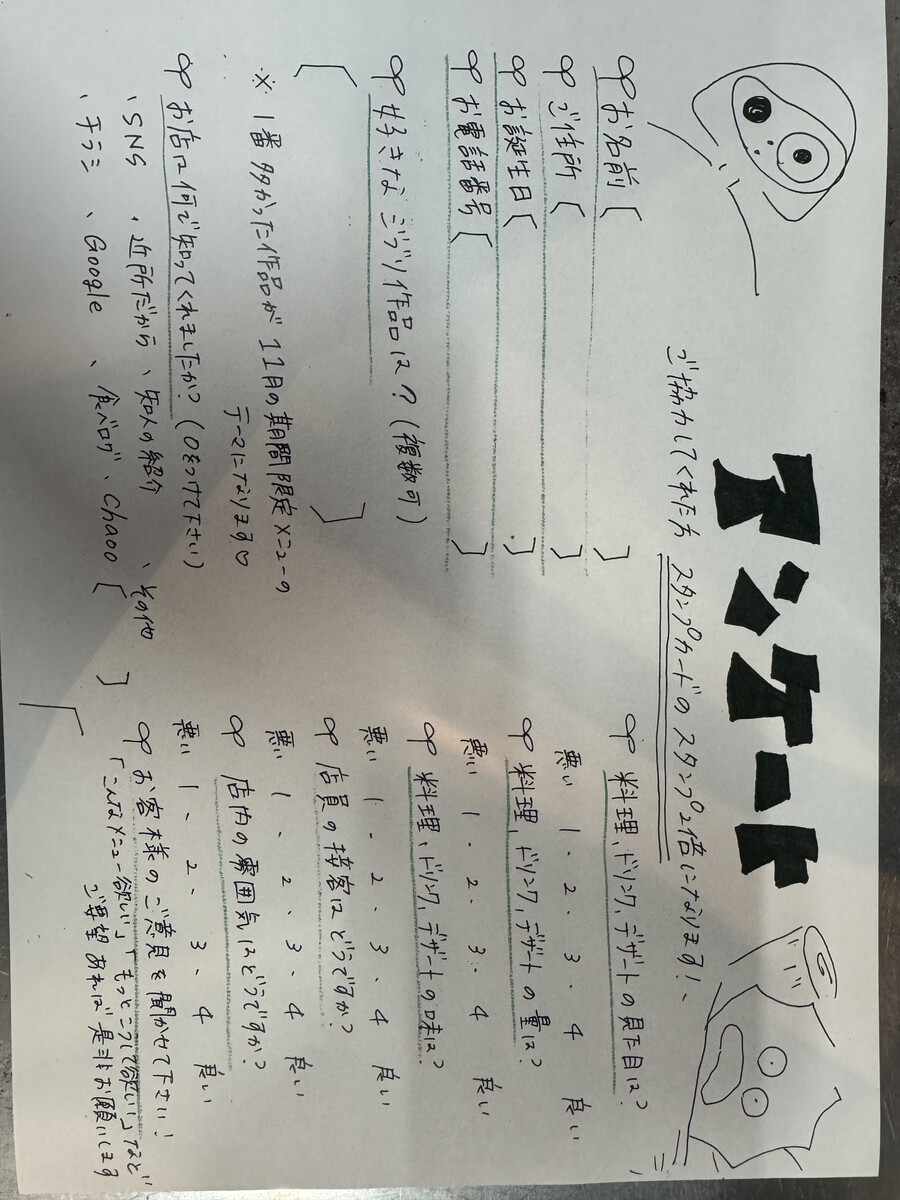 アンケート
ご協力してくれた方 スタンプカードのスタンプ2倍になります!、
お名前〔 〕
ご住所〔 〕
お誕生日〔 〕
お電話番号〔 〕
好きなジブリ作品は?(複数可)
〔 〕
※ 1番多かった作品が11月の期間限定メニューの
テーマになります♡
お店は何で知ってくれましたか?(○をつけて下さい)
、SNS 、近所だから、知人の紹介 、その他
、チラシ 、Google 、食べログ、Chaoo〔 〕
料理、ドリンク、デザートの見た目は?
悪い 1・2・3・4 良い
料理、ドリンク、デザートの量は?
悪い 1・2・3・4 良い
料理、ドリンク、デザートの味は?
悪い 1・2、3、4 良い
店員の接客はどうですか?
悪い 1、2、3、4 良い
店内の雰囲気はどうですか?
悪い 1、2、3、4 良い
お客様のご意見を聞かせて下さい!
「こんなメニュー欲しい」、もっとこうして欲しい」など
ご要望あれば是非お願いします